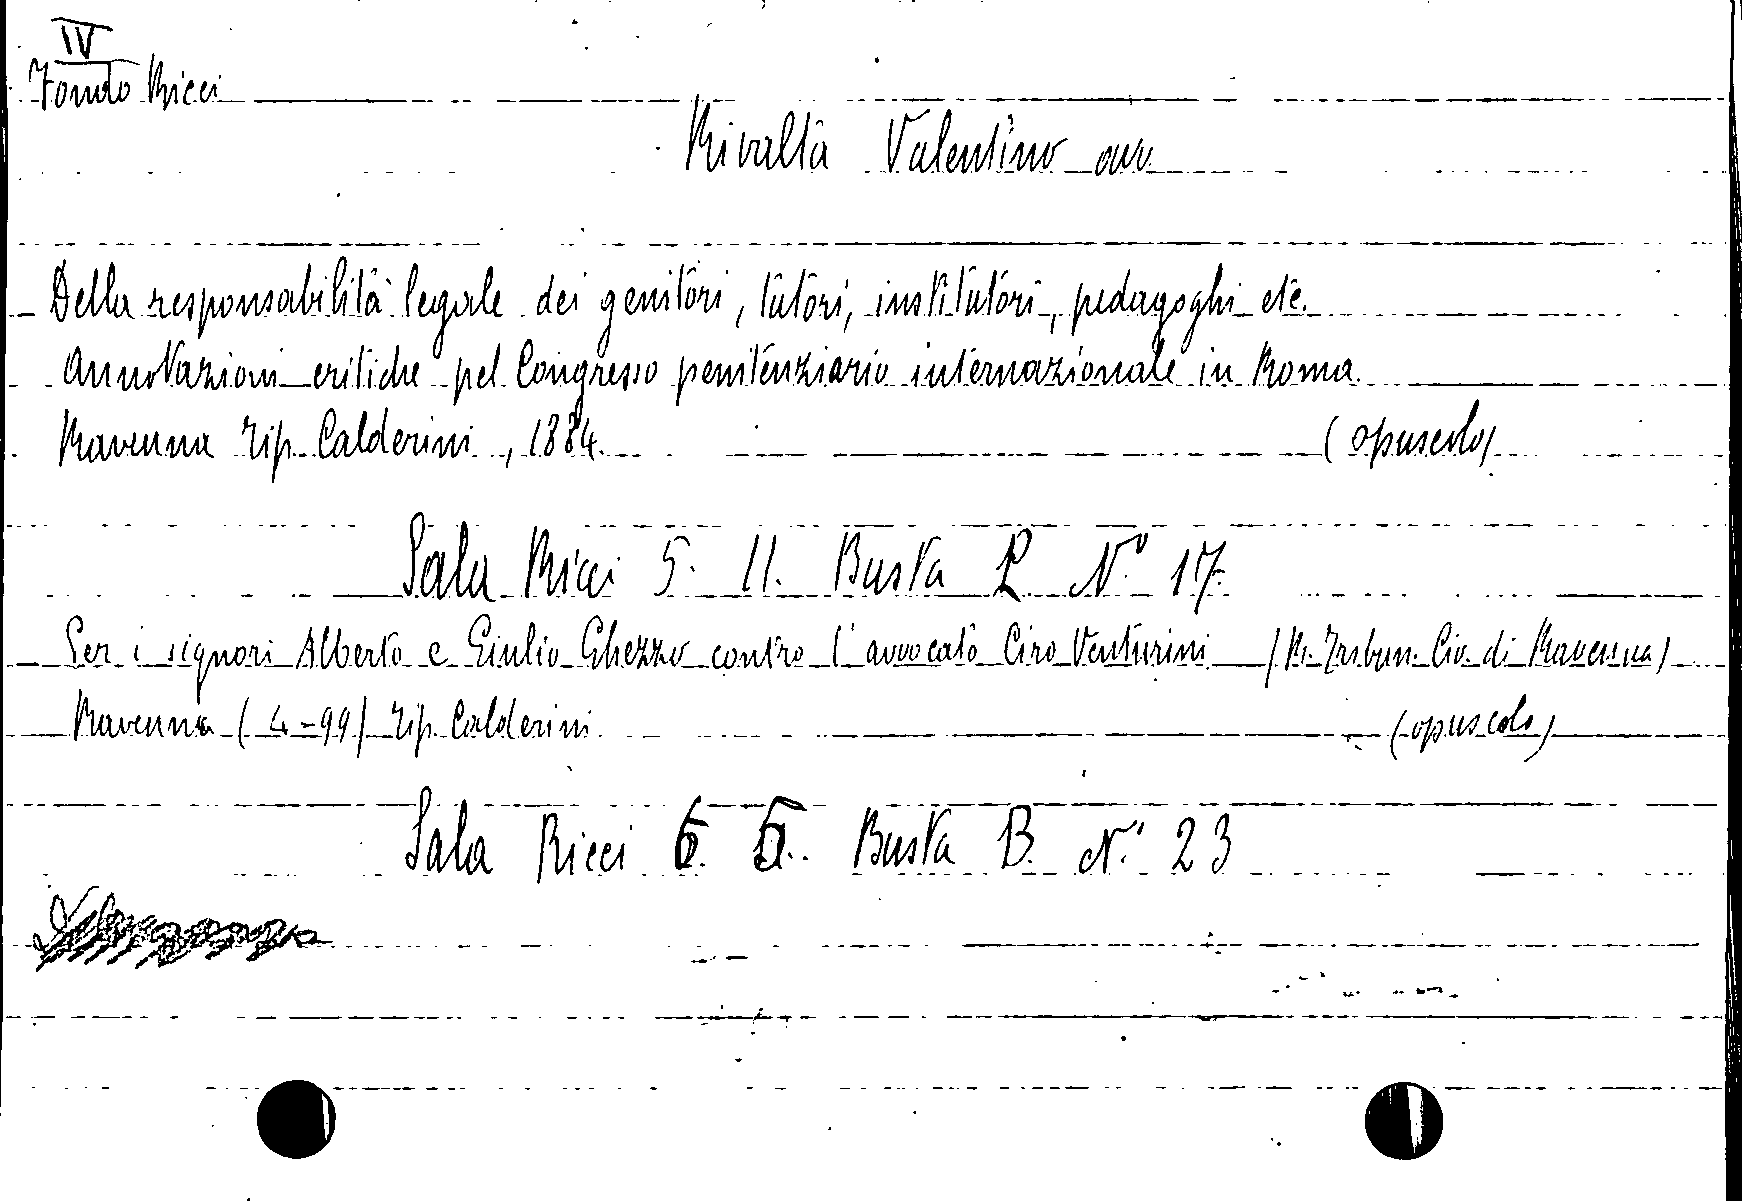 IV
Fondo Ricci
Rivalta Valentino avv.
- Della responsabilità legale dei genitori, tutori, institutori, pedagoghi etc.
Annotazioni critiche pel Congresso penitenziario internazionale in Roma.
Ravenna Tip. Calderini, 1884. (opuscolo)
Sala Ricci 5. 11. Busta R N.° 17.
- Per i signori Alberto e Giulio Ghezzo contro l'avvocato Ciro Venturini (R. Tribun. Civ. di Ravenna)
Ravenna (4-99) Tip. Calderini. (opuscolo)
Sala Ricci 6. 5. Busta B. N.° 23